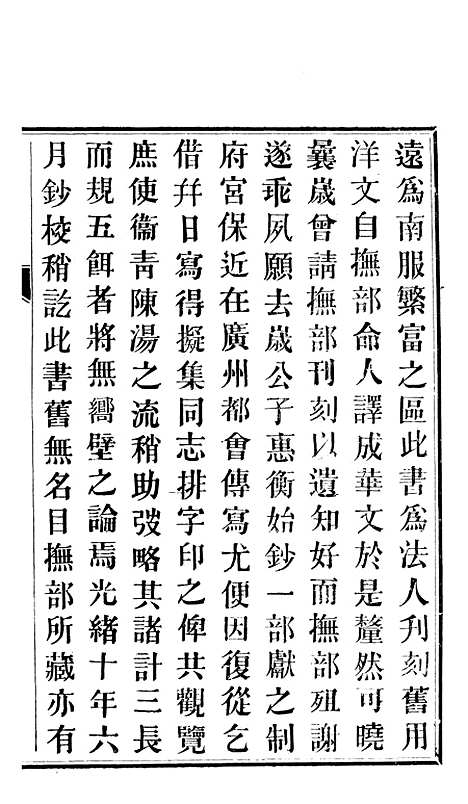 遠爲南服繁富之區此書爲法人刋刻舊用
洋文自撫部命人譯成華文於是釐然可曉
曩歲曾請撫部刊刻以遺知好而撫部殂謝
遂乖夙願去歲公子惠衡始鈔一部獻之制
府宮保近在廣州都會傳寫尤便因復從乞
借幷日寫得擬集同志排字印之俾共觀覽
庶使衞靑陳湯之流稍助弢略其諸計三長
而規五餌者將無嚮壁之論焉光緒十年六
月鈔校稍訖此書舊無名目撫部所藏亦有